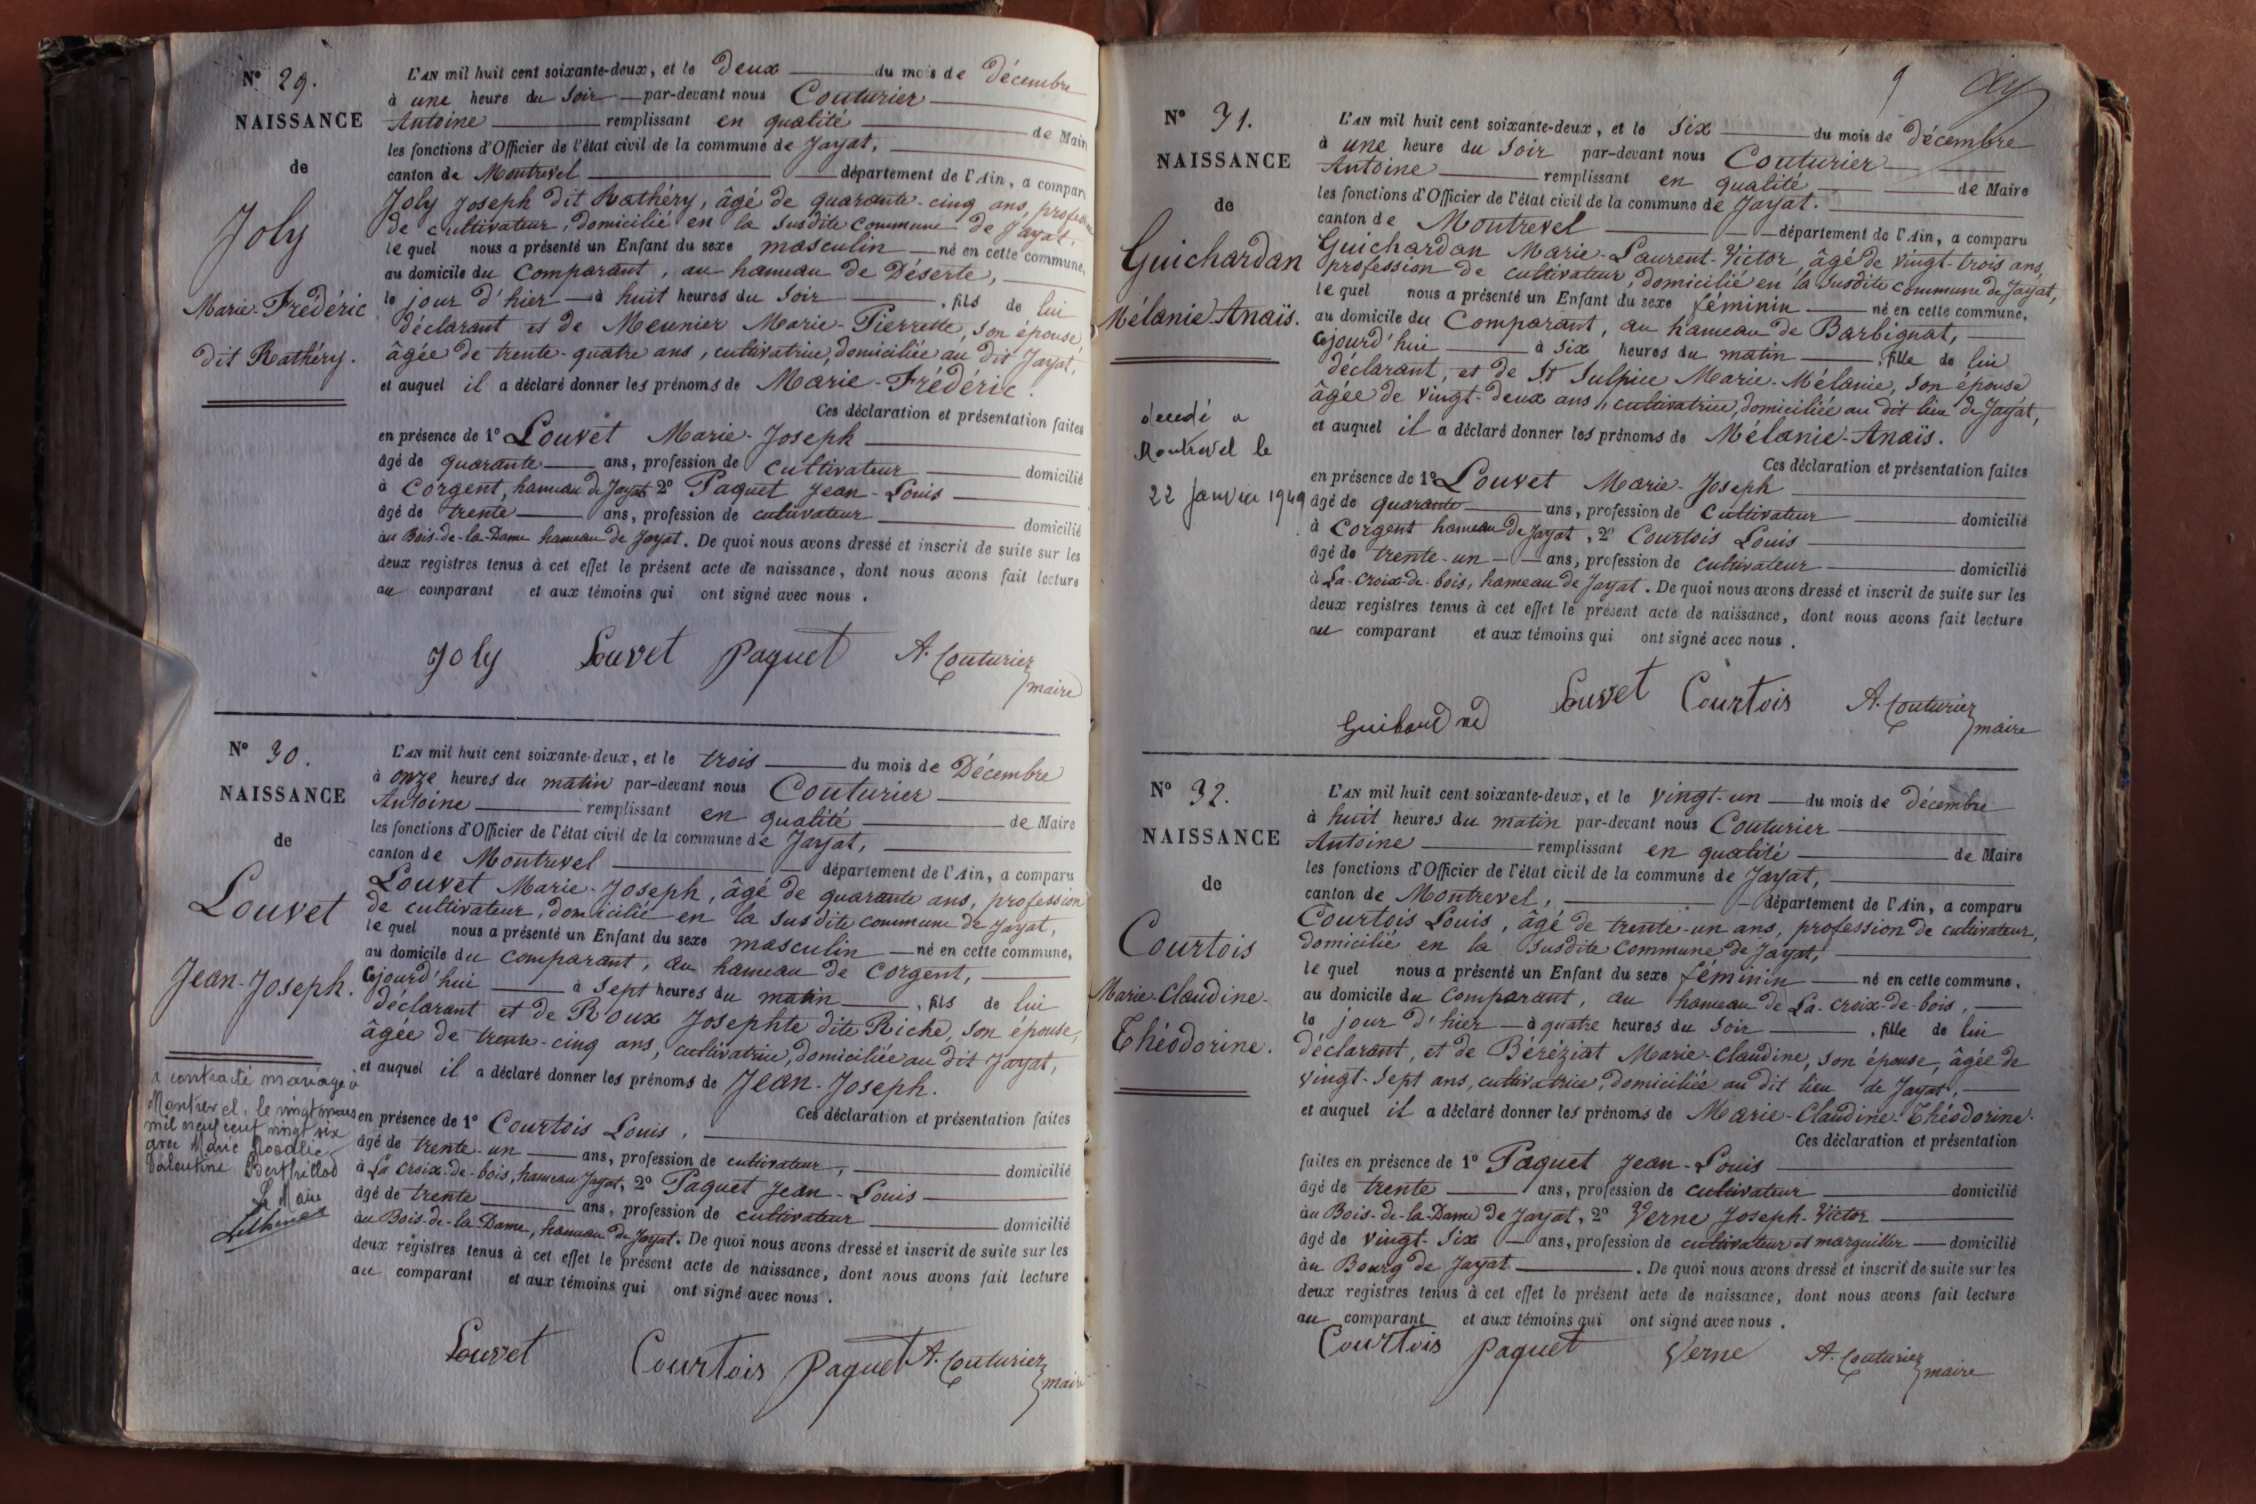 N° 29.
NAISSANCE
de
Joly
Marie-Frédéric
dit Rathéry.
L'AN mil huit cent soixante-deux, et le deux du mois de décembre
à une heure du soir par-devant nous Couturier
Antoine remplissant en qualité de Maire
les fonctions d'Officier de l'état civil de la commune de Jayat,
canton de Montrevel département de l'Ain, a comparu
Joly Joseph dit Rathéry, âgé de quarante-cinq ans, profession
de cultivateur, domicilié en la susdite commune de Jayat,
lequel nous a présenté un Enfant du sexe masculin né en cette commune,
au domicile du comparant, au hameau de Déserte,
le jour d'hier à huit heures du soir, fils de lui
déclarant et de Meunier Marie-Pierrette, son épouse,
âgée de trente-quatre ans, cultivatrice, domiciliée au dit Jayat,
et auquel il a déclaré donner les prénoms de Marie-Frédéric.
Ces déclaration et présentation faites
en présence de 1° Louvet Marie-Joseph
âgé de quarante ans, profession de cultivateur domicilié
à Corgent, hameau de Jayat 2° Paquet Jean-Louis
âgé de trente ans, profession de cultivateur domicilié
au Bois-de-la-Dame hameau de Jayat. De quoi nous avons dressé et inscrit de suite sur les
deux registres tenus à cet effet le présent acte de naissance, dont nous avons fait lecture
au comparant et aux témoins qui ont signé avec nous.
Joly Louvet Paquet A. Couturier
maire
N° 30.
NAISSANCE
de
Louvet
Jean-Joseph.
a contracté mariage à
Montrevel, le vingt mars
mil neuf cent vingt six
avec Marie Rosalie
Valentine Berthillod
Le Maire
L'AN mil huit cent soixante-deux, et le trois du mois de Décembre
à onze heures du matin par-devant nous Couturier
Antoine remplissant en qualité de Maire
les fonctions d'Officier de l'état civil de la commune de Jayat,
canton de Montrevel département de l'Ain, a comparu
Louvet Marie-Joseph, âgé de quarante ans, profession
de cultivateur, domicilié en la susdite commune de Jayat,
lequel nous a présenté un Enfant du sexe masculin né en cette commune,
au domicile du comparant, au hameau de Corgent,
cejourd'hui à sept heures du matin, fils de lui
déclarant et de Roux Josephte dite Riche, son épouse,
âgée de trente-cinq ans, cultivatrice, domiciliée au dit Jayat,
et auquel il a déclaré donner les prénoms de Jean-Joseph.
Ces déclaration et présentation faites
en présence de 1° Courtois Louis,
âgé de trente-un ans, profession de cultivateur, domicilié
à La croix-de-bois, hameau Jayat, 2° Paquet Jean-Louis
âgé de trente ans, profession de cultivateur domicilié
au Bois-de-la-Dame, hameau de Jayat. De quoi nous avons dressé et inscrit de suite sur les
deux registres tenus à cet effet le présent acte de naissance, dont nous avons fait lecture
au comparant et aux témoins qui ont signé avec nous.
Louvet Courtois Paquet A. Couturier
maire
9
N° 31.
NAISSANCE
de
Guichardan
Mélanie-Anaïs.
décedé a
Montrevel le
22 Janvier 1949
L'AN mil huit cent soixante-deux, et le six du mois de décembre
à une heure du soir par-devant nous Couturier
Antoine remplissant en qualité de Maire
les fonctions d'Officier de l'état civil de la commune de Jayat.
canton de Montrevel département de l'Ain, a comparu
Guichardan Marie-Laurent-Victor âgé de vingt-trois ans,
profession de cultivateur, domicilié en la susdite commune de Jayat,
lequel nous a présenté un Enfant du sexe féminin né en cette commune,
au domicile du comparant, au hameau de Barbignat,
cejourd'hui à six heures du matin, fille de lui
déclarant, et de St Sulpice Marie-Mélanie, son épouse
âgée de vingt-deux ans, cultivatrice, domiciliée au dit lieu de Jayat,
et auquel il a déclaré donner les prénoms de Mélanie-Anaïs.
Ces déclaration et présentation faites
en présence de 1° Louvet Marie-Joseph
âgé de quarante ans, profession de cultivateur domicilié
à Corgent hameau de Jayat, 2° Courtois Louis
âgé de trente-un ans, profession de cultivateur domicilié
à La-croix-de-bois, hameau de Jayat. De quoi nous avons dressé et inscrit de suite sur les
deux registres tenus à cet effet le présent acte de naissance, dont nous avons fait lecture
au comparant et aux témoins qui ont signé avec nous.
Louvet Courtois A. Couturier
maire
N° 32.
NAISSANCE
de
Courtois
Marie-Claudine-
Théodorine.
L'AN mil huit cent soixante-deux, et le vingt-un du mois de décembre
à huit heures du matin par-devant nous Couturier
Antoine remplissant en qualité de Maire
les fonctions d'Officier de l'état civil de la commune de Jayat,
canton de Montrevel, département de l'Ain, a comparu
Courtois Louis, âgé de trente-un ans, profession de cultivateur,
domicilié en la susdite commune de Jayat,
lequel nous a présenté un Enfant du sexe féminin né en cette commune,
au domicile du comparant, au hameau de La-croix-de-bois,
le jour d'hier à quatre heures du soir, fille de lui
déclarant, et de Béréziat Marie-Claudine, son épouse, âgée de
vingt-sept ans, cultivatrice, domiciliée au dit lieu de Jayat,
et auquel il a déclaré donner les prénoms de Marie-Claudine-Théodorine.
Ces déclaration et présentation
faites en présence de 1° Paquet Jean-Louis
âgé de trente ans, profession de cultivateur domicilié
au Bois-de-la-Dame de Jayat, 2° Verne Joseph-Victor
âgé de vingt-six ans, profession de cultivateur et marguiller domicilié
au Bourg de Jayat. De quoi nous avons dressé et inscrit de suite sur les
deux registres tenus à cet effet le présent acte de naissance, dont nous avons fait lecture
au comparant et aux témoins qui ont signé avec nous.
Courtois Paquet Verne A. Couturier
maire